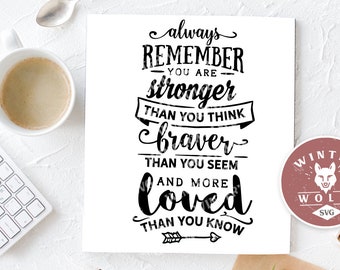 always
REMEMBER
YOU ARE
stronger
THAN YOU THINK
braver
THAN YOU SEEM
AND MORE
loved
THAN YOU KNOW
WINTER
WOLF
SVG